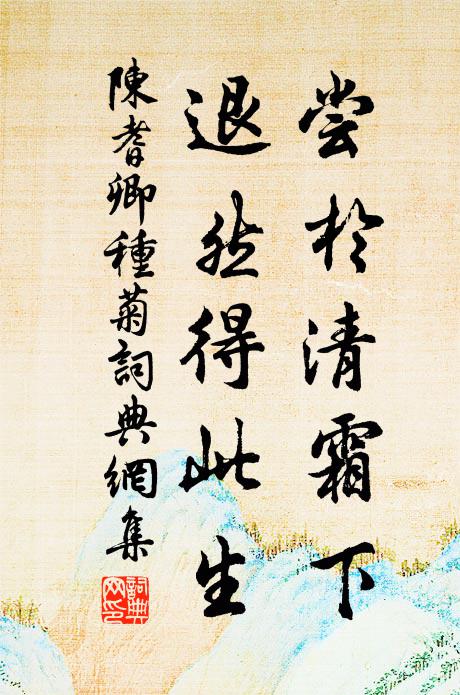 尝於清霜下
退然得此生
陳耆卿種菊詞典網集
詞典網印